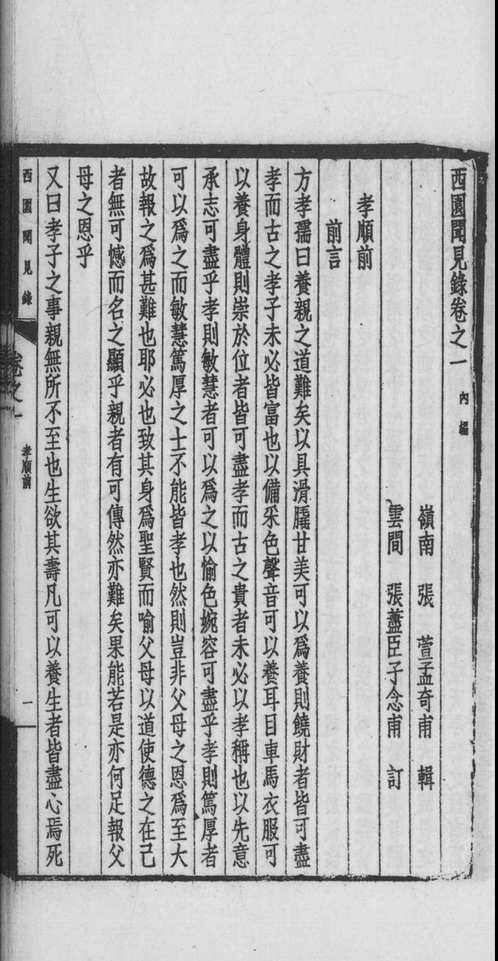 西園聞見錄卷之一 內編
嶺南 張 萱孟奇甫 輯
雲間 張藎臣子念甫 訂
孝順前
前言
方孝孺曰養親之道難矣以具滑膿甘美可以爲養則饒財者皆可盡
孝而古之孝子未必皆富也以備采色聲音可以養耳目車馬衣服可
以養身體則崇於位者皆可盡孝而古之貴者未必以孝稱也以先意
承志可盡乎孝則敏慧者可以爲之以愉色婉容可盡乎孝則篤厚者
可以爲之而敏慧篤厚之士不能皆孝也然則豈非父母之恩爲至大
故報之爲甚難也耶必也致其身爲聖賢而喻父母以道使德之在己
者無可憾而名之顯乎親者有可傳然亦難矣果能若是亦何足報父
母之恩乎
又曰孝子之事親無所不至也生欲其壽凡可以養生者皆盡心焉死
西園聞見錄 卷之一 孝順前 一